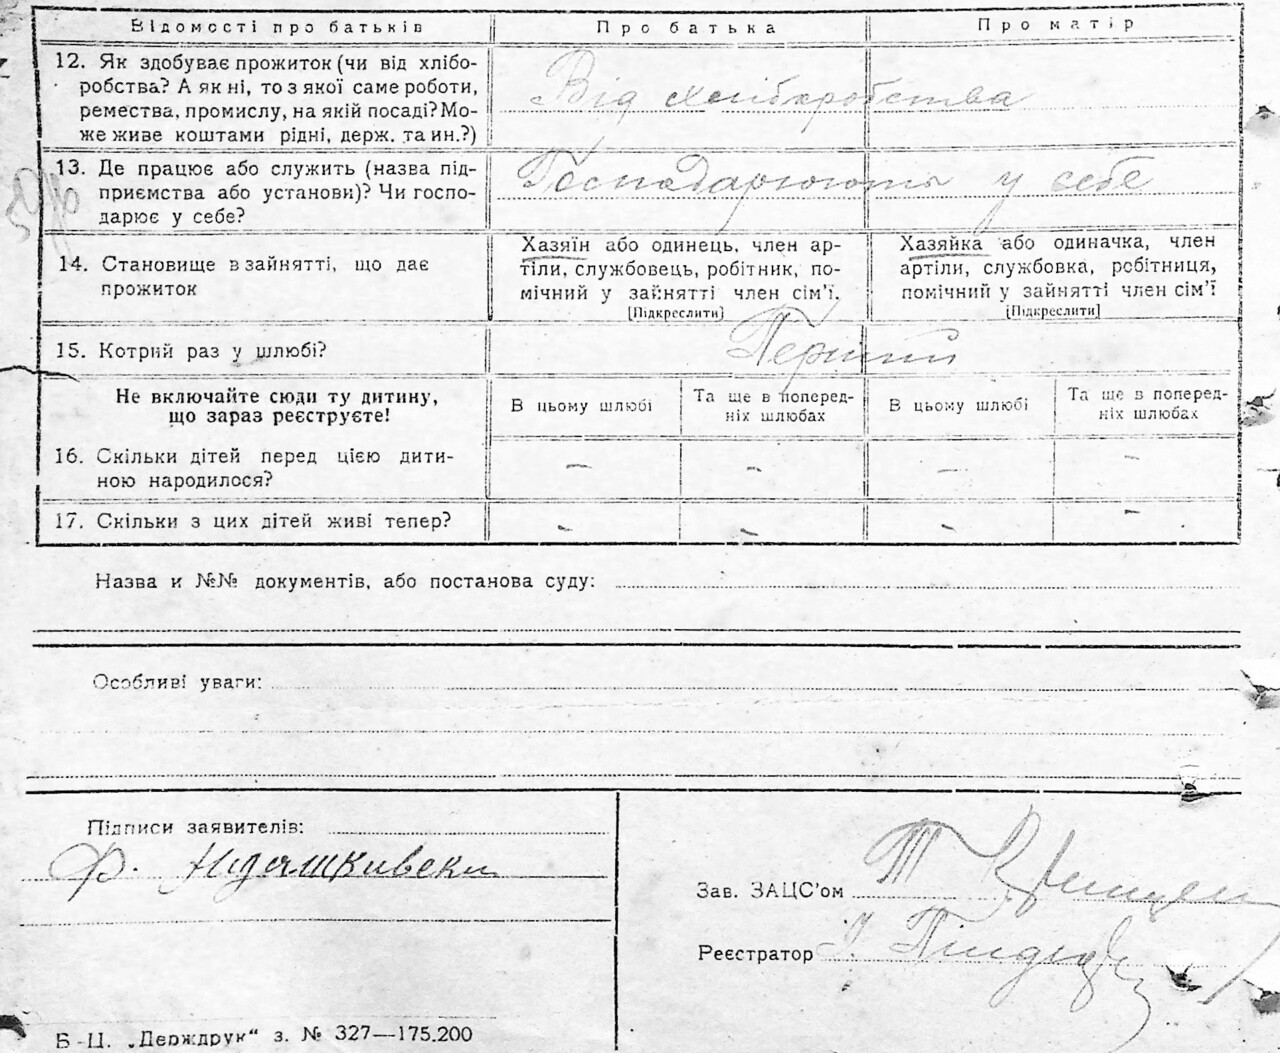 Відомості про батьків Про батька Про матір
12. Як здобуває прожиток (чи від хлібо-
робства? А як ні, то з якої саме роботи,
ремества, промислу, на якій посаді? Мо-
же живе коштами рідні, держ. та ин.?)
Від хліборобства
13. Де працює або служить (назва під-
приємства або установи)? Чи госпо-
дарює у себе?
Господарюють у себе
14. Становище в зайнятті, що дає
прожиток
Хазяїн або одинець, член ар-
тіли, службовець, робітник, по-
мічний у зайнятті член сім'ї.
[Підкреслити]
Хазяйка або одиначка, член
артіли, службовка, робітниця,
помічний у зайнятті член сім'ї
[Підкреслити]
15. Котрий раз у шлюбі?
Перший
Не включайте сюди ту дитину,
що зараз реєструєте!
В цьому шлюбі
Та ще в поперед-
ніх шлюбах
В цьому шлюбі
Та ще в поперед-
ніх шлюбах
16. Скільки дітей перед цією дити-
ною народилося?
– – – –
17. Скільки з цих дітей живі тепер?
– – – –
Назва и №№ документів, або постанова суду:
Особливі уваги:
Підписи заявителів:
Ф.
Зав. ЗАЦС'ом
Реєстратор
Б-Ц. „Держдрук“ з. № 327—175.200